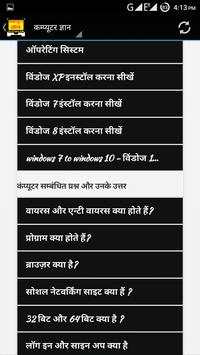 4:13 PM
कम्प्यूटर ज्ञान
ऑपरेटिंग सिस्टम
विंडोज XP इनस्टॉल करना सीखें
विंडोज 7 इंस्टॉल करना सीखें
विंडोज 8 इंस्टॉल करना सीखें
windows 7 to windows 10 - विंडोज 1...
कंप्यूटर सम्बंधित प्रश्न और उनके उत्तर
वायरस और एन्टी वायरस क्या होते हैं?
प्रोग्राम क्या होते हैं?
ब्राउज़र क्या है?
सोशल नेटवर्किंग साइट क्या हैं ?
32 बिट और 64 बिट क्या है ?
लॉग इन और साइन अप क्या है